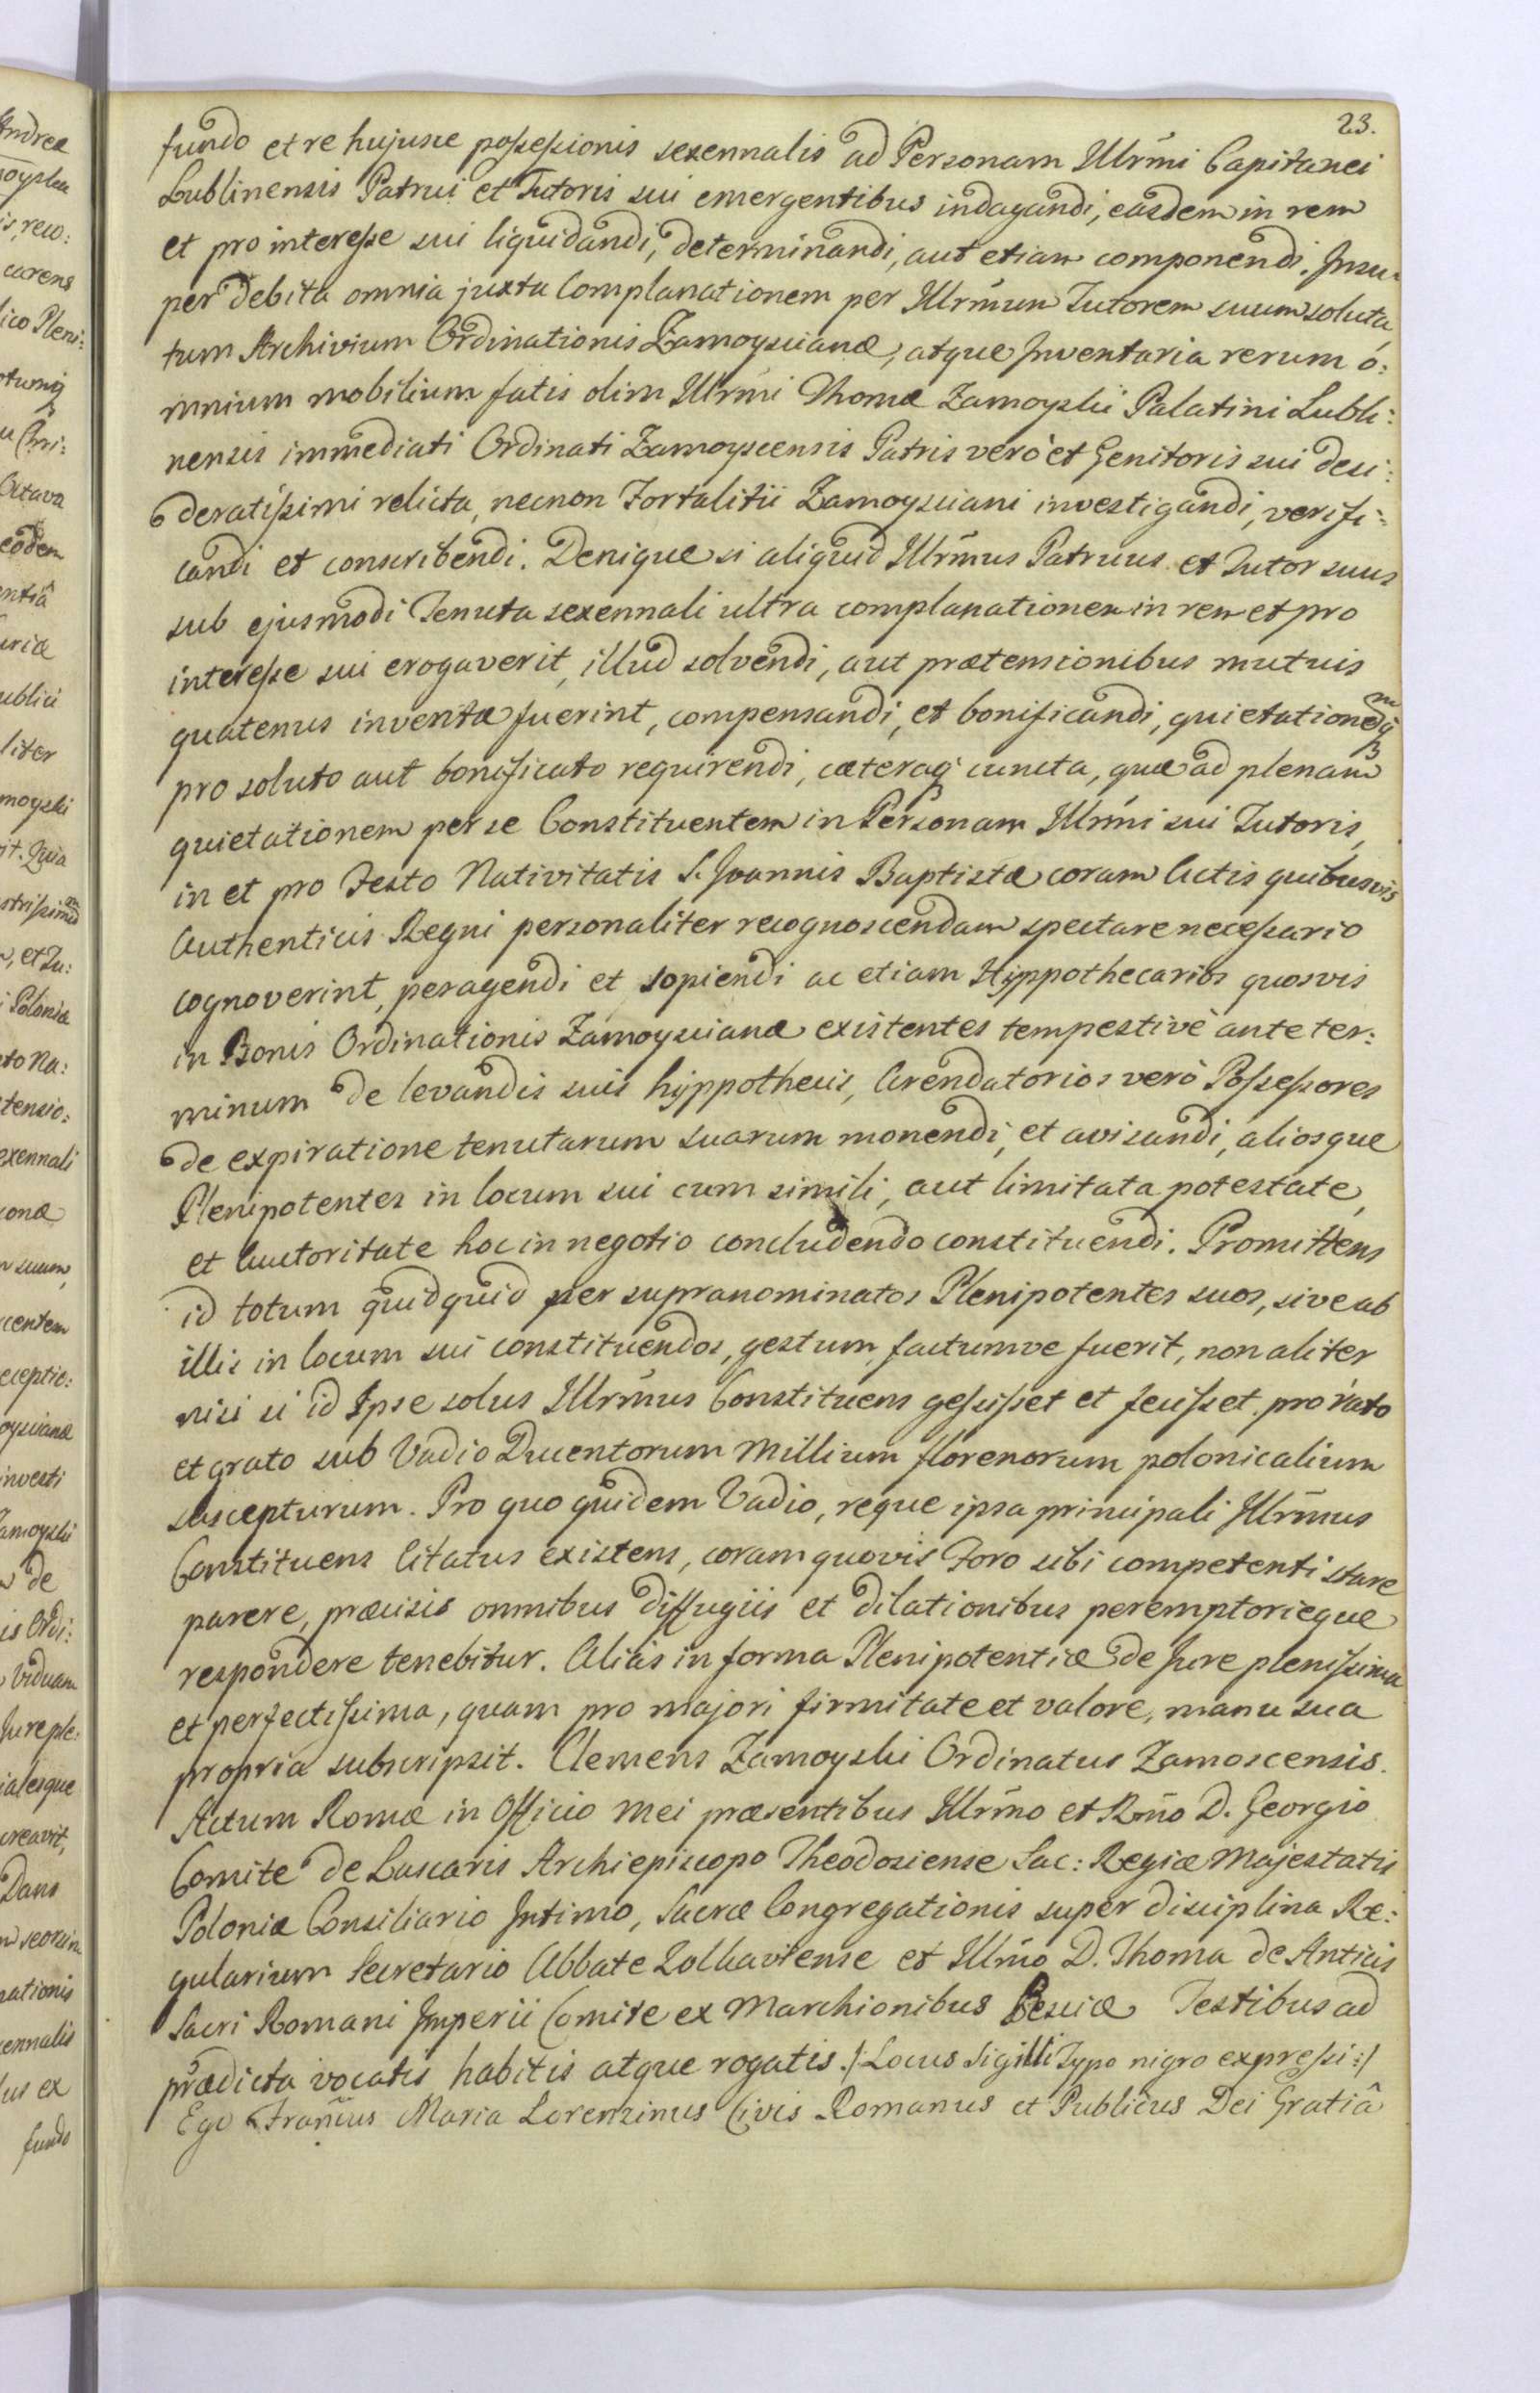 23.
fundo et re hujusce possessionis sexennalis ad Personam Illrm̃i Capitanei
Lublinensis Patrui et Tutoris sui emergentibus indagandi, easdem in rem
et pro interesse sui liquidandi, determinandi, aut etiam componendi. Insu-
per debita omnia juxta Complanationem per Illrm̃um Tutorem suum soluta,
tum Archivium Ordinationis Zamoyscianæ, atque Inventaria rerum o:
mnium mobilium fatis olim Illrm̃i Thomæ Zamoyskii Palatini Lubli:
nensis immediati Ordinati Zamoyscensis Patris verò et Genitoris sui desi:
deratissimi relicta, necnon Fortalitii Zamoysciani investigandi, verifi:
candi et conscribendi. Denique si aliquid Illrm̃us Patruus et Tutor suus
sub ejusmodi Tenuta sexennali ultra complanationem in rem et pro
interesse sui erogaverit, illud solvendi, aut prætensionibus mutuis
quatenus inventæ fuerint, compensandi, et bonificandi, quietationemq₃
pro soluto aut bonificato requirendi, cæteraq₃ cuncta, quæ ad plenam
quietationem per se Constituentem in Personam Illrm̃i sui Tutoris,
in et pro Festo Nativitatis S. Joannis Baptistæ coram Actis quibusvis
Authenticis Regni personaliter recognoscendam spectare necessario
cognoverint, peragendi et sopiendi ac etiam Hyppothecarios quosvis
in Bonis Ordinationis Zamoyscianæ existentes tempestivè ante ter:
minum de levandis suis hyppothecis, Arendatorios verò Possessores
de expiratione tenutarum suarum monendi, et avisandi, aliosque
Plenipotentes in locum sui cum simili, aut limitata potestate,
et Auctoritate hoc in negotio concludendo constituendi. Promittens
id totum quidquid per supranominatos Plenipotentes suos, sive ab
illis in locum sui constituendos, gestum, factumve fuerit, non aliter
nisi si id Ipse solus Illrm̃us Constituens gessisset et fecisset. pro rato
et grato sub Vadio Ducentorum Millium florenorum polonicalium
suscepturum. Pro quo quidem Vadio, reque ipsa principali Illrm̃us
Constituens Citatus existens, coram quovis Foro sibi competenti stare
parere, præcisis omnibus diffugiis et dilationibus peremptorieque
respondere tenebitur. Aliàs in forma Plenipotentiæ de Jure plenissima
et perfectissima, quam pro majori firmitate et valore, manu sua
propria subscripsit. Clemens Zamoyski Ordinatus Zamoscensis.
Actum Romæ in Officio mei præsentibus Illrm̃o et Rm̃o D. Georgio
Comite de Lascaris Archiepiscopo Theodosiense Sac: Regiæ Majestatis
Poloniæ Consiliario Intimo, Sacræ Congregationis super disciplina Re:
gularium Secretario Abbate Zolkaviense et Illm̃o D. Thoma de Anticis
Sacri Romani Imperii Comite ex Marchionibus Pesciæ Testibus ad
prædicta vocatis habitis atque rogatis. /: Locus Sigilli Typo nigro expressi :/
Ego Franc̃us Maria Lorenzinus Civis Romanus et Publicus Dei Gratiâ